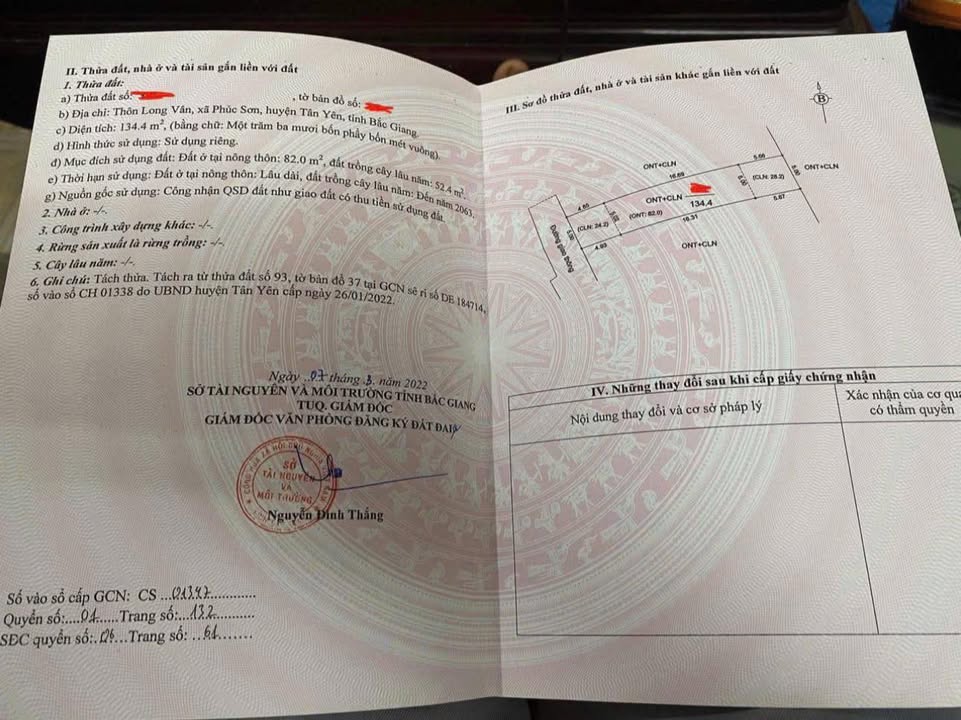 II. Thửa đất, nhà ở và tài sản gắn liền với đất
1. Thửa đất:
a) Thửa đất số: , tờ bản đồ số:
b) Địa chỉ: Thôn Long Vân, xã Phúc Sơn, huyện Tân Yên, tỉnh Bắc Giang.
c) Diện tích: 134.4 m², (bằng chữ: Một trăm ba mươi bốn phẩy bốn mét vuông).
d) Hình thức sử dụng: Sử dụng riêng.
đ) Mục đích sử dụng đất: Đất ở tại nông thôn: 82.0 m², đất trồng cây lâu năm: 52.4 m².
e) Thời hạn sử dụng: Đất ở tại nông thôn: Lâu dài, đất trồng cây lâu năm: Đến năm 2063.
g) Nguồn gốc sử dụng: Công nhận QSD đất như giao đất có thu tiền sử dụng đất.
2. Nhà ở: -/-.
3. Công trình xây dựng khác: -/-.
4. Rừng sản xuất là rừng trồng: -/-.
5. Cây lâu năm: -/-.
6. Ghi chú: Tách thửa. Tách ra từ thửa đất số 93, tờ bản đồ 37 tại GCN sê ri số DE 184714,
số vào sổ CH 01338 do UBND huyện Tân Yên cấp ngày 26/01/2022.
Ngày 07 tháng 3 năm 2022
SỞ TÀI NGUYÊN VÀ MÔI TRƯỜNG TỈNH BẮC GIANG
TUQ. GIÁM ĐỐC
GIÁM ĐỐC VĂN PHÒNG ĐĂNG KÝ ĐẤT ĐAI
SỞ
TÀI NGUYÊN
VÀ
MÔI TRƯỜNG
Nguyễn Đình Thắng
Số vào sổ cấp GCN: CS ...01347...
Quyển số:....01.....Trang số:...132...
SĐC quyển số:.126...Trang số: ..61.......
III. Sơ đồ thửa đất, nhà ở và tài sản khác gắn liền với đất
B
ONT+CLN
5.66
16.69
5.00
(CLN: 28.2)
5.00
ONT+CLN
ONT+CLN
134,4
4.85
5.02
(ONT: 82.0)
5.67
(CLN: 24.2)
16.31
5.00
4.83
ONT+CLN
Đường giao thông
IV. Những thay đổi sau khi cấp giấy chứng nhận
Nội dung thay đổi và cơ sở pháp lý
Xác nhận của cơ qua
có thẩm quyền